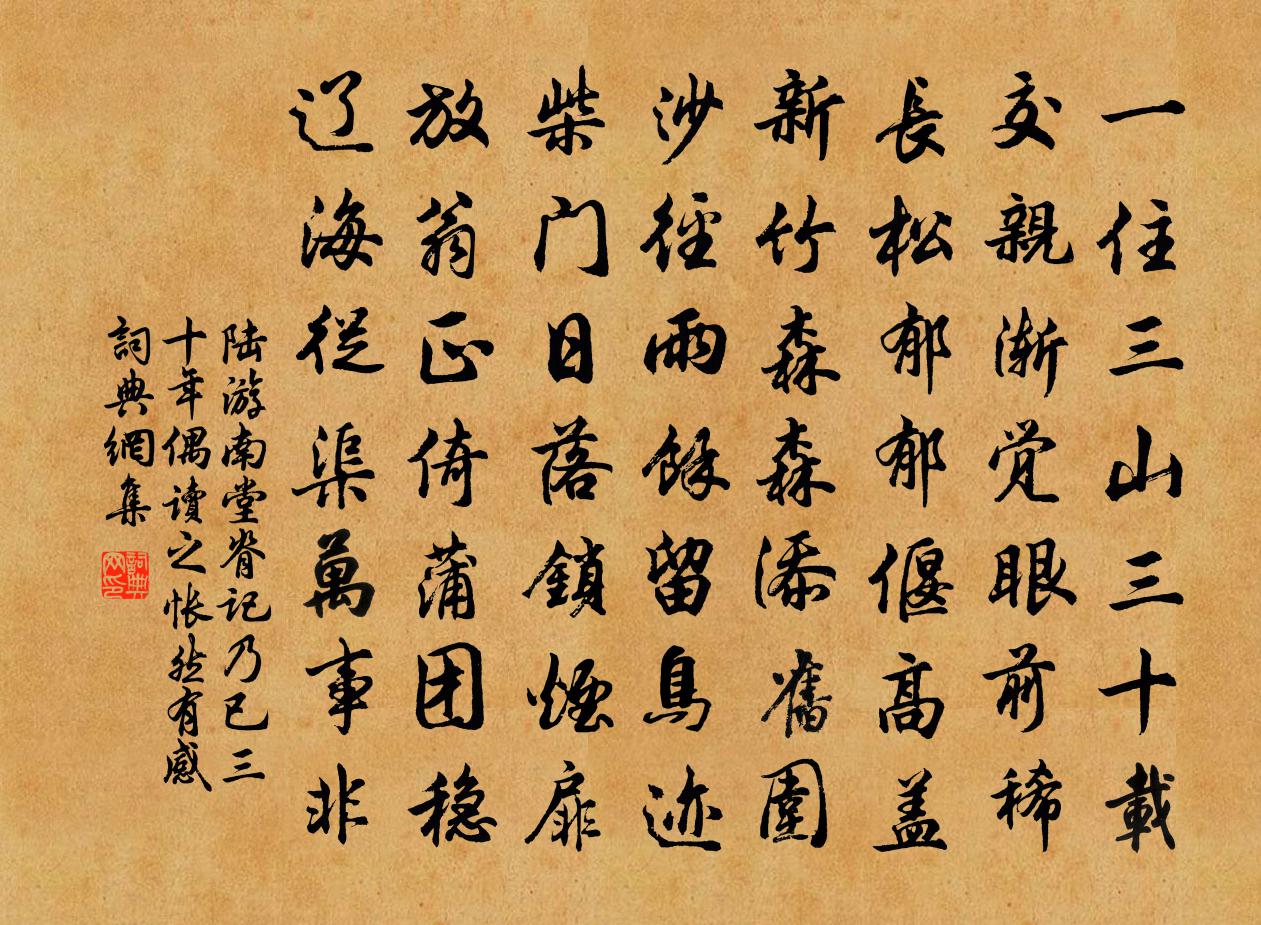 一住三山三十載
交親漸覺眼前稀
長松郁郁偃高盖
新竹森森添舊圍
沙徑雨餘留鳥迹
柴门日落鎖煙扉
放翁正倚蒲团稳
辽海從渠萬事非
陆游南堂脊记乃已三
十年偶讀之怅然有感
詞典網集
詞典
网印